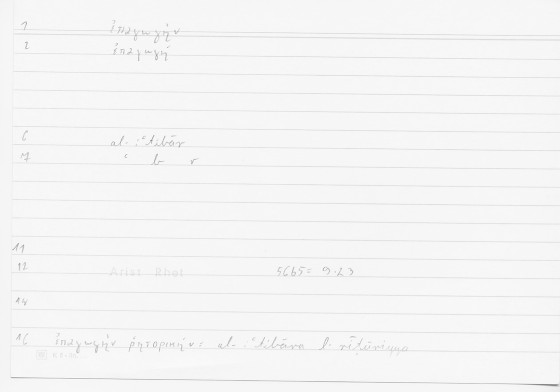 1 ἐπαγωγὴν
2 ἐπαγωγή
6 al-iʿtibār
7 ʿ b r
11
12 Arist Rhet 56b5 =
14
16 ἐπαγωγὴν ῥητορικήν = al-iʿtibāra l-rīṭūrīyya